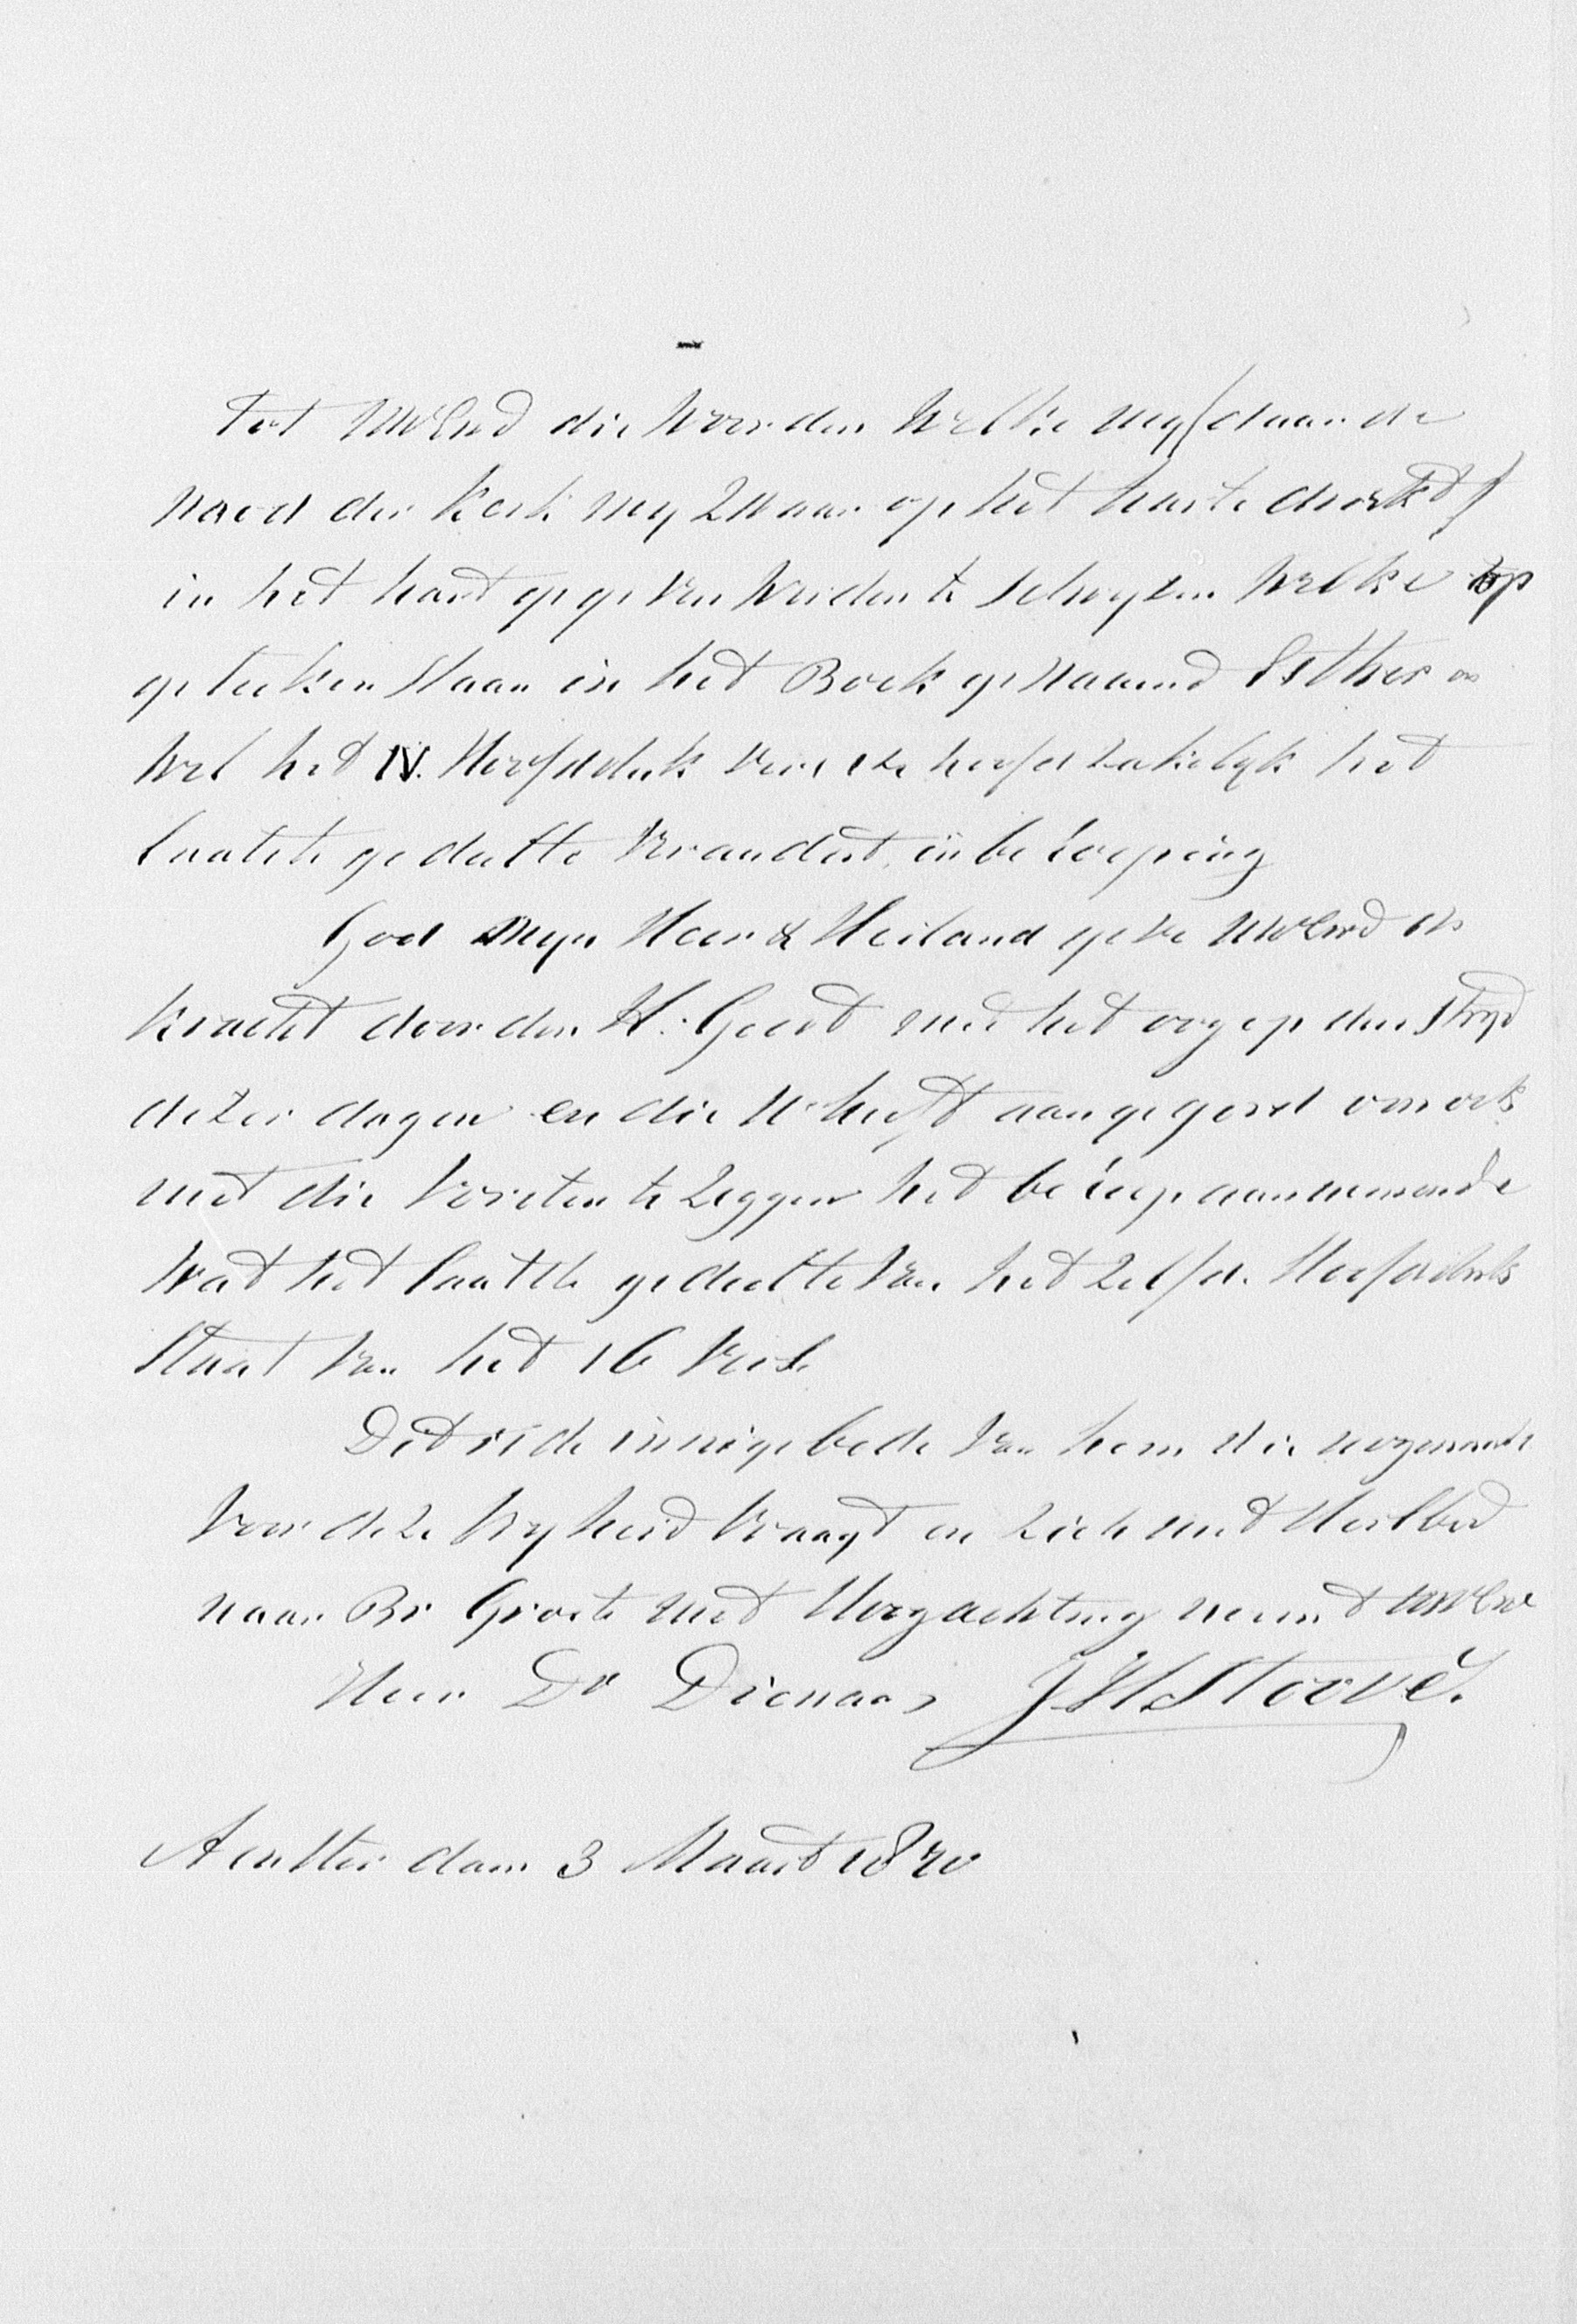 Tot UWEwd die woorden welke my (daar de
nood der Kerk my zwaar op het harte drukt)
in het hart gegeven worden te schryven welke op
geteeken staan in het Boek genaamd Esther en
wel het IV. Hoofdstuk vers 14 hoofdzakelyk het
laatste gedeelte verandert in beroeping
God myn Heer & Heiland geve UWEwd
kracht door den H. Geest met het oog op den stryd
dezer dagen en die U heeft aangegord om ook
met die Vorstin te zeggen het beroep aannemende
wat het laatste gedeelte van het zelfde Hoofdstuk
staat van het 16 Vers
Dit is de innige bede van hem die
voor deze vryheid vraagt en zich met Heilbed
naar Br Groete met Hoogachting noemt UWEw
Heer Dr Dienaar J H Stoové.
Amsterdam 3 Maart 1870